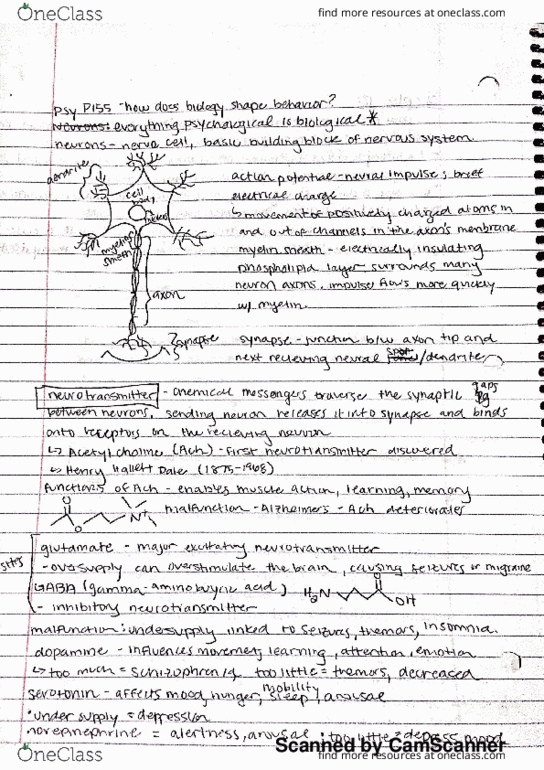 OneClass
find more resources at oneclass.com
Psy P155 - how does biology shape behavior?
Neurons: everything psychological is biological *
neurons - nerve cell, basic building block of nervous system
dendrite
cell body
myelin sheath
axon
synapse
action potential - neural impulse; brief
electrical charge
↳ movement of positively charged atoms in
and out of channels in the axon's membrane
myelin sheath - electrically insulating
phospholipid layer surrounds many
neuron axons, impulse flows more quickly
w/ myelin
synapse - junction b/w axon tip and
next recieving neural /dendrite
neurotransmitter - chemical messengers traverse the synaptic gaps
between neurons, sending neuron releases it into synapse and binds
onto receptors on the recieving neuron
↳ Acetylcholine (Ach) - first neurotransmitter discovered
↳ Henry Hallett Dale (1875-1968)
functions of Ach - enables muscle action, learning, memory
malfunction - Alzheimers - Ach deteriorates
O
O
N+
glutamate - major excitatory neurotransmitter
- oversupply can overstimulate the brain, causing seizures or migraine
GABA (gamma-aminobuycic acid) H₂N O OH
- inhibitory neurotransmitter
malfunction: undersupply linked to seizures, tremors, insomnia.
dopamine - influences movement, learning, attention, emotion
↳ too much = schizophrenia too little = tremors, decreased
mobility
serotonin - affects mood, hunger, sleep, arousal
• under supply = depression
norepinephrine = alertness, arousal ; too little = depress mood
Scanned by CamScanner
OneClass
find more resources at oneclass.com